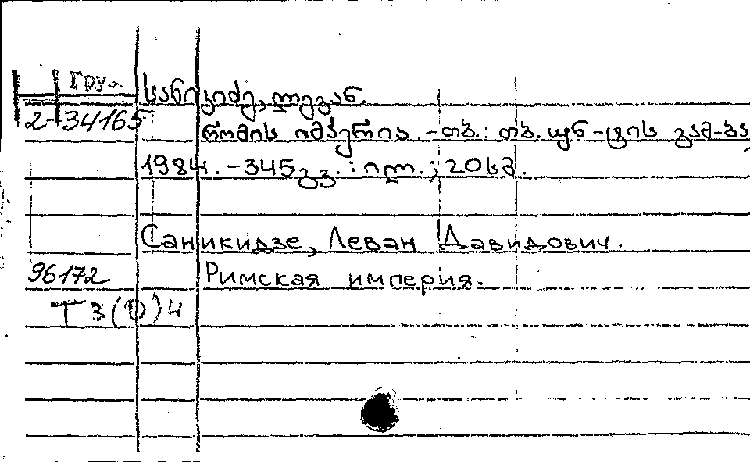 Груз.
სანიკიძე, ლევან.
2-34165
რომის იმპერია. -თბ.: თბ. უნ-ტის გამ-ბა,
1984. -345 გვ. : ილ. ; 20 სმ.
Саникидзе, Леван Давидович.
96172
Римская империя.
Т3(0)4